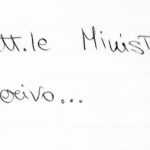 tt.le Minist
crivo...